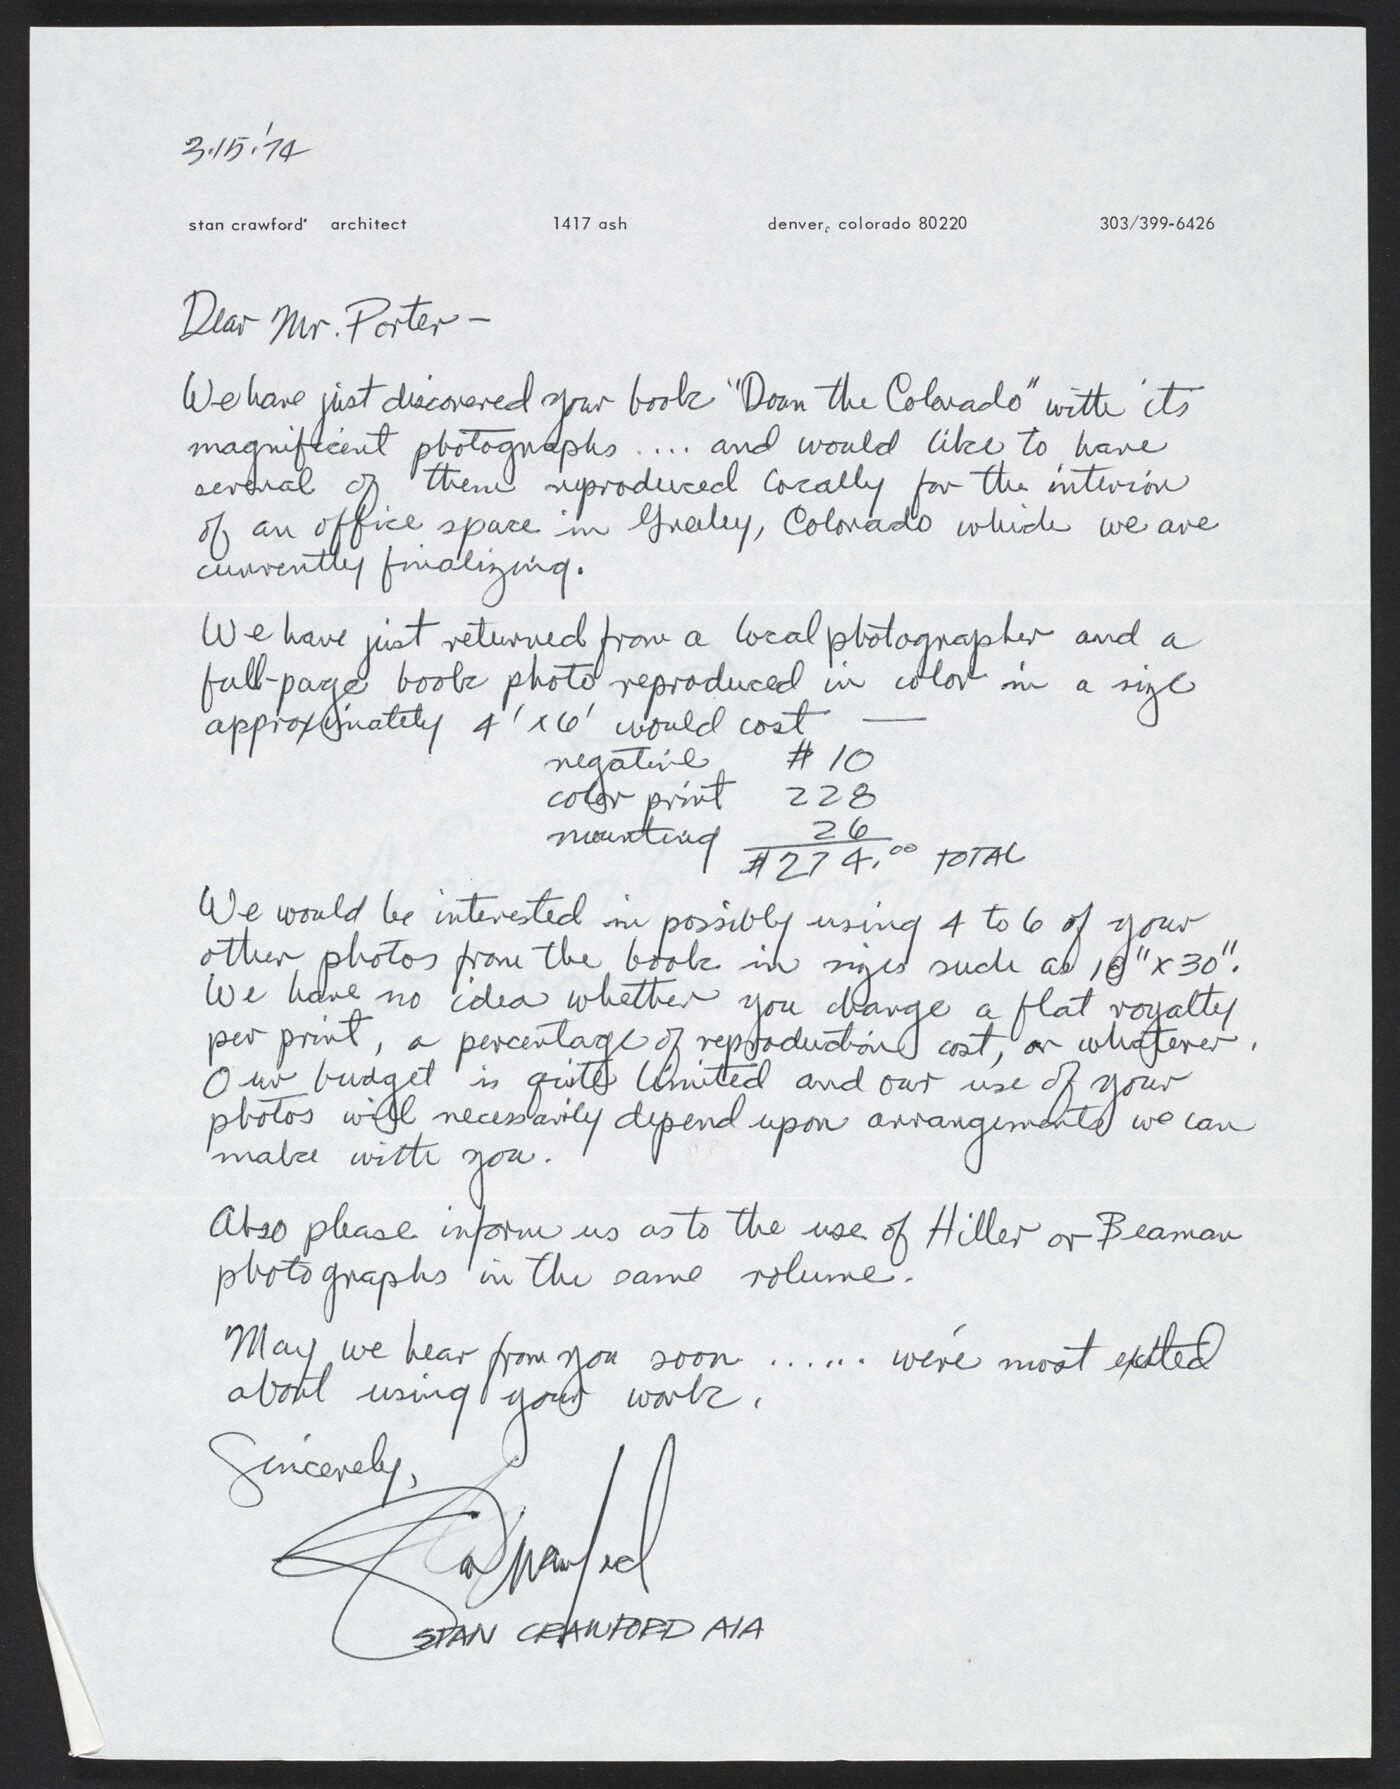 3.15.'74
stan crawford' architect 1417 ash denver, colorado 80220 303/399-6426
Dear Mr. Porter –
We have just discovered your book "Down the Colorado" with its
magnificent photographs .... and would like to have
several of them reproduced locally for the interior
of an office space in Greeley, Colorado which we are
currently finalizing.
We have just returned from a local photographer and a
full-page book photo reproduced in color in a size
approximately 4' x 6' would cost —
negative $ 10
color print 228
mounting 26
$274.00 TOTAL
We would be interested in possibly using 4 to 6 of your
other photos from the book in sizes such as " x 30".
We have no idea whether you charge a flat royalty
per print, a percentage of reproduction cost, or whatever.
Our budget is quite limited and our use of your
photos will necessarily depend upon arrangements we can
make with you.
Also please inform us as to the use of Hiller or Beaman
photographs in the same volume.
May we hear from you soon ...... we're most excited
about using your work.
Sincerely,
Stan Crawford
STAN CRAWFORD AIA